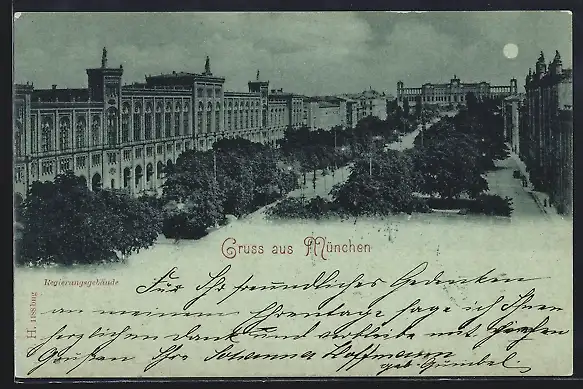 Gruss aus München
Regierungsgebäude
Für Ihr freundliches Gedenken
an meinem Ehrentage sage ich Ihnen
herzlichen Dank und verbleibe mit
Grüßen Ihre Johanna Hoffmann
geb. Gumbel